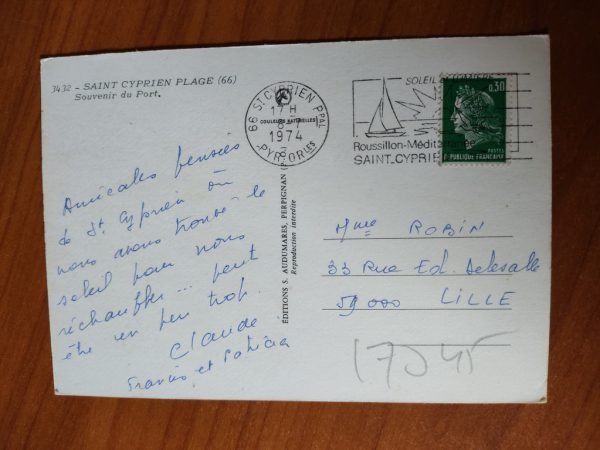 3432 - SAINT CYPRIEN PLAGE (66)
Souvenir du Port.
Amicales pensées
de St. Cyprien où
nous avons trouvé le
soleil pour nous
réchauffer... peut
être un peu trop.
Claude
Francis et Patricia
ÉDITIONS S. AUDUMARES, PERPIGNAN
Reproduction interdite
COULEURS NATURELLES
66 ST CYPRIEN PPAL
17H
1974
PYR. ORLES
SOLEIL
Roussillon-Méditerranée
SAINT_CYPRIE
0,30
POSTES
RÉPUBLIQUE FRANÇAISE
Mme ROBIN
33 Rue Ed. Delesalle
59000 LILLE